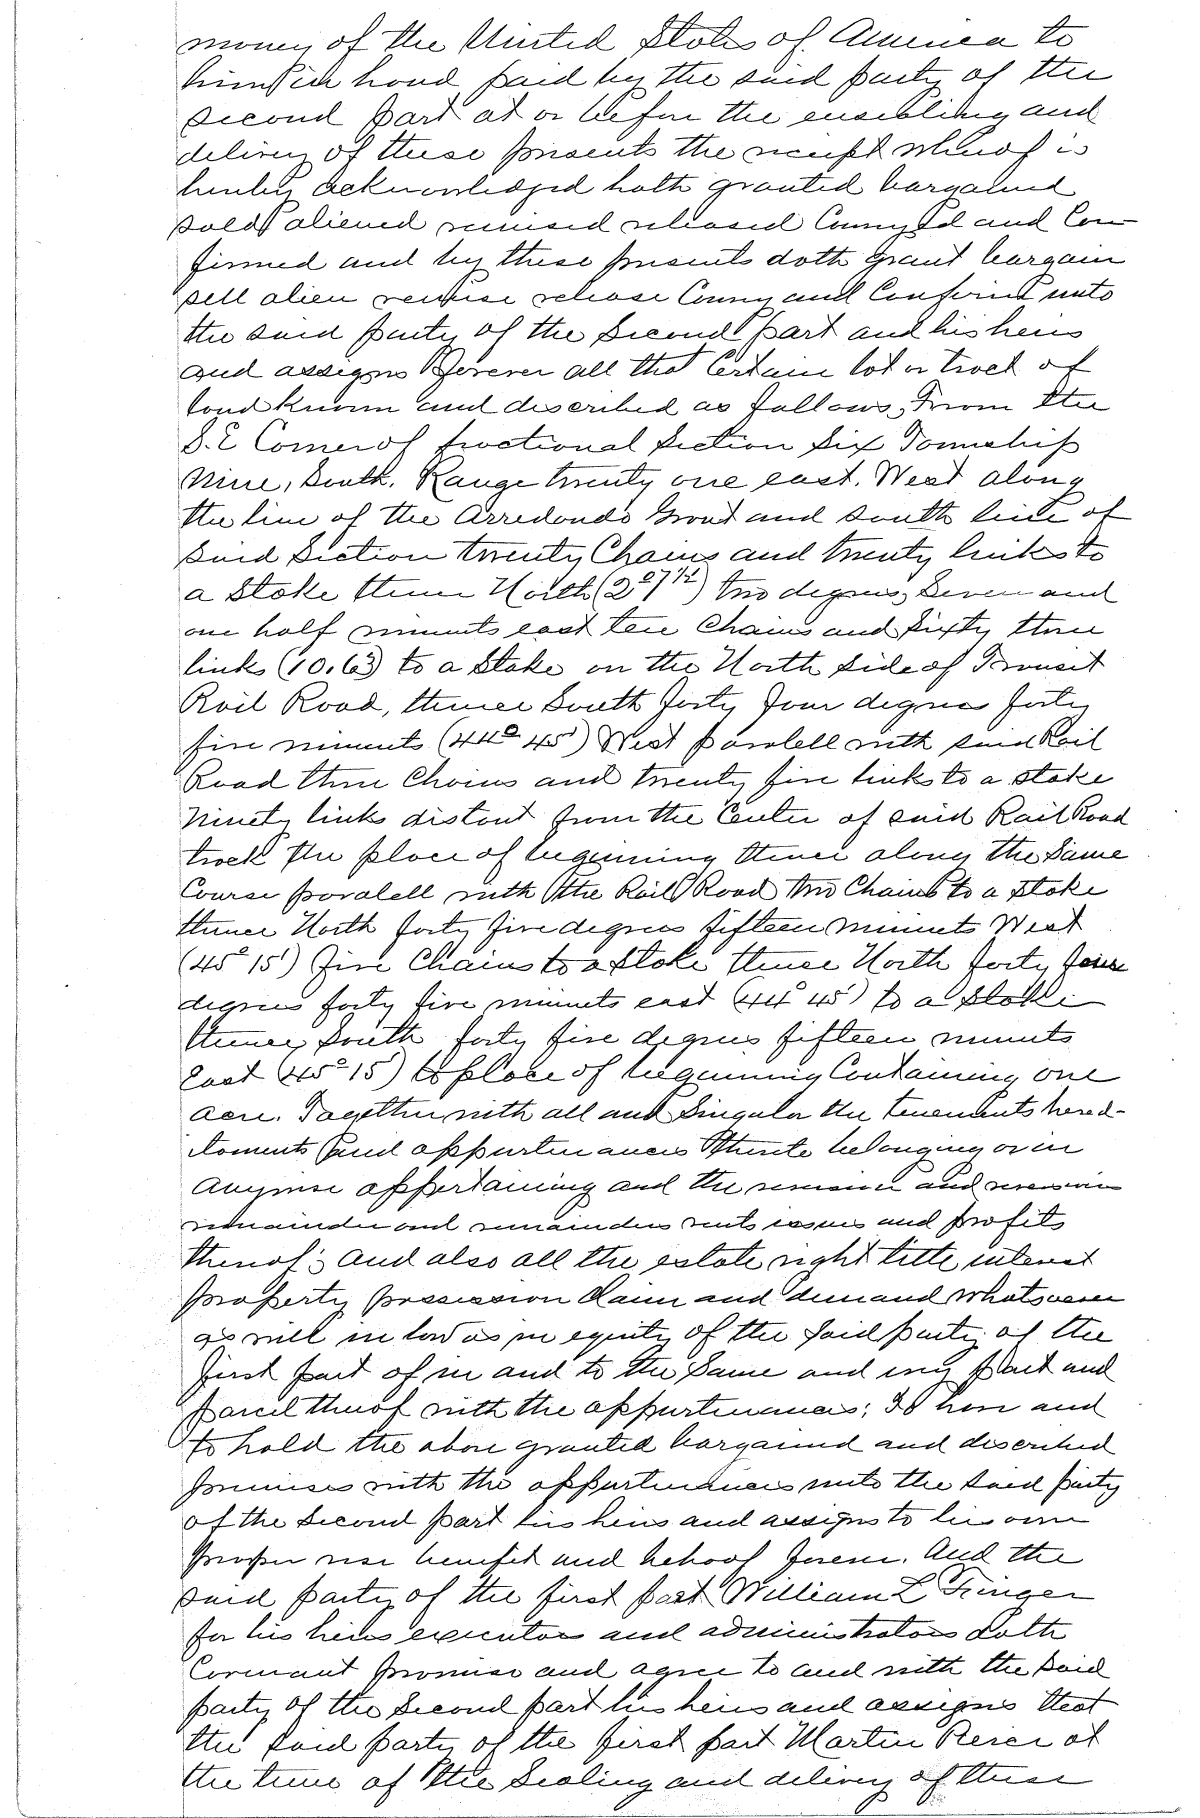 money of the United States of America to
him in hand paid by the said party of the
second part at or before the ensealing and
delivery of these presents the receipt whereof is
hereby acknowledged hath granted bargained
sold aliened remised released Conveyed and Con-
firmed and by these presents doth grant bargain
sell alien remise release Convey and Confirm unto
the said party of the Second part and his heirs
and assigns Forever all that Certain lot or tract of
land known and described as follows, From the
S. E Corner of fractional Section Six Township
Nine, South. Range twenty one east. West along
the line of the Arredondo Grant and South line of
Said Section twenty Chains and twenty links to
a Stake thence North (2° 7 1/2) two degrees, Seven and
one half minuts east ten Chains and Sixty three
links (10.63) to a Stake on the North Side of Transit
Rail Road, thence South forty four degrees forty
five minuts (44° 45') West paralell with said Rail
Road three Chains and twenty five links to a stake
Ninety links distant from the Center of said Rail Road
track the place of beginning thence along the Same
Course paralell with the Rail Road two Chains to a Stake
thence North forty five degrees fifteen minuts West
(45° 15') five Chains to a Stake thence North forty four
degrees forty five minuts east (44° 45') to a Stake
thence South forty five degrees fifteen minuts
East (45° 15') to place of beginning Containing one
acre. Together with all and Singular the tenements hered-
itaments and appurtenances thereto belonging or in
Anywise appertaining and the reversion and reversions
remainder and remainders rents issues and profits
thereof; and also all the estate right title interest
property possession Claim and demand whatsoever
as well in law as in equity of the said party of the
first part of in and to the Same and every part and
parcel thereof with the appurtenances; To have and
to hold the above granted bargained and described
premises with the appurtenances unto the said party
of the Second part his heirs and assigns to his own
proper use benefit and behoof forever. And the
said party of the first part William L
for his heirs executors and administrators doth
Covenant promise and agree to and with the Said
party of the Second part his heirs and assigns that
the said party of the first part Martin at
the time of the Sealing and delivery of these